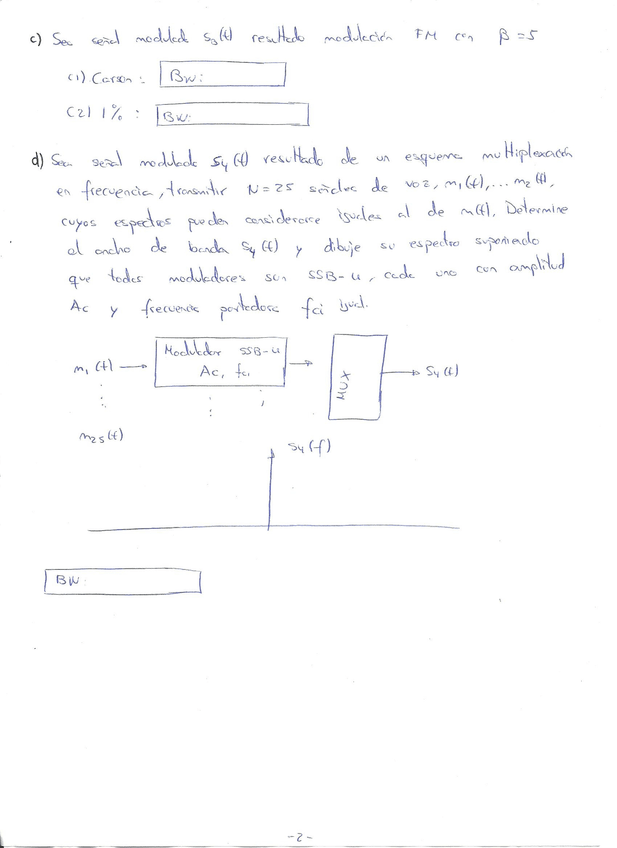 c) Sea señal modulada S3(t) resultado modulación FM con β=5
(1) Carson : BW:
(2) 1% : BW:
d) Sea señal modulada S4(t) resultado de un esquema multiplexación
en frecuencia, transmitir N=25 señales de voz, m1(t),... m2(t),
cuyos espectros pueden considerarse iguales al de m(t). Determine
el ancho de banda S4(t) y dibuje su espectro suponiendo
que todos moduladores son SSB-u, cada uno con amplitud
Ac y frecuencia portadora fci igual.
m1(t) Modulador SSB-u
Ac, fci MUX S4(t)
m25(t)
S4(f)
BW:
-2-